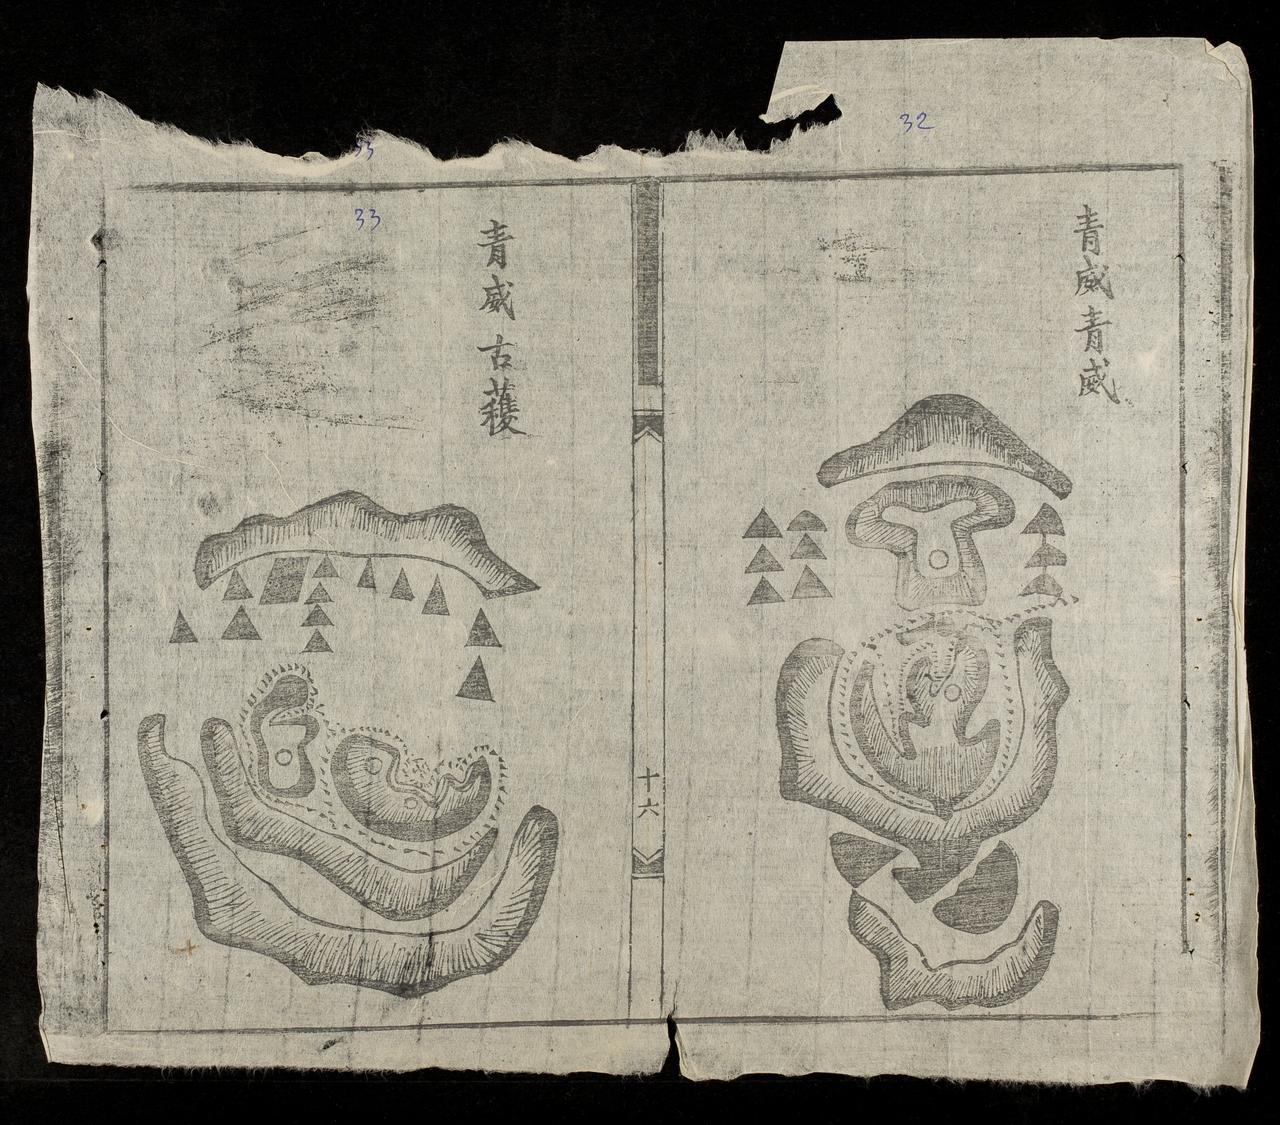 32
青威青威
十六
33
33
青威古穫